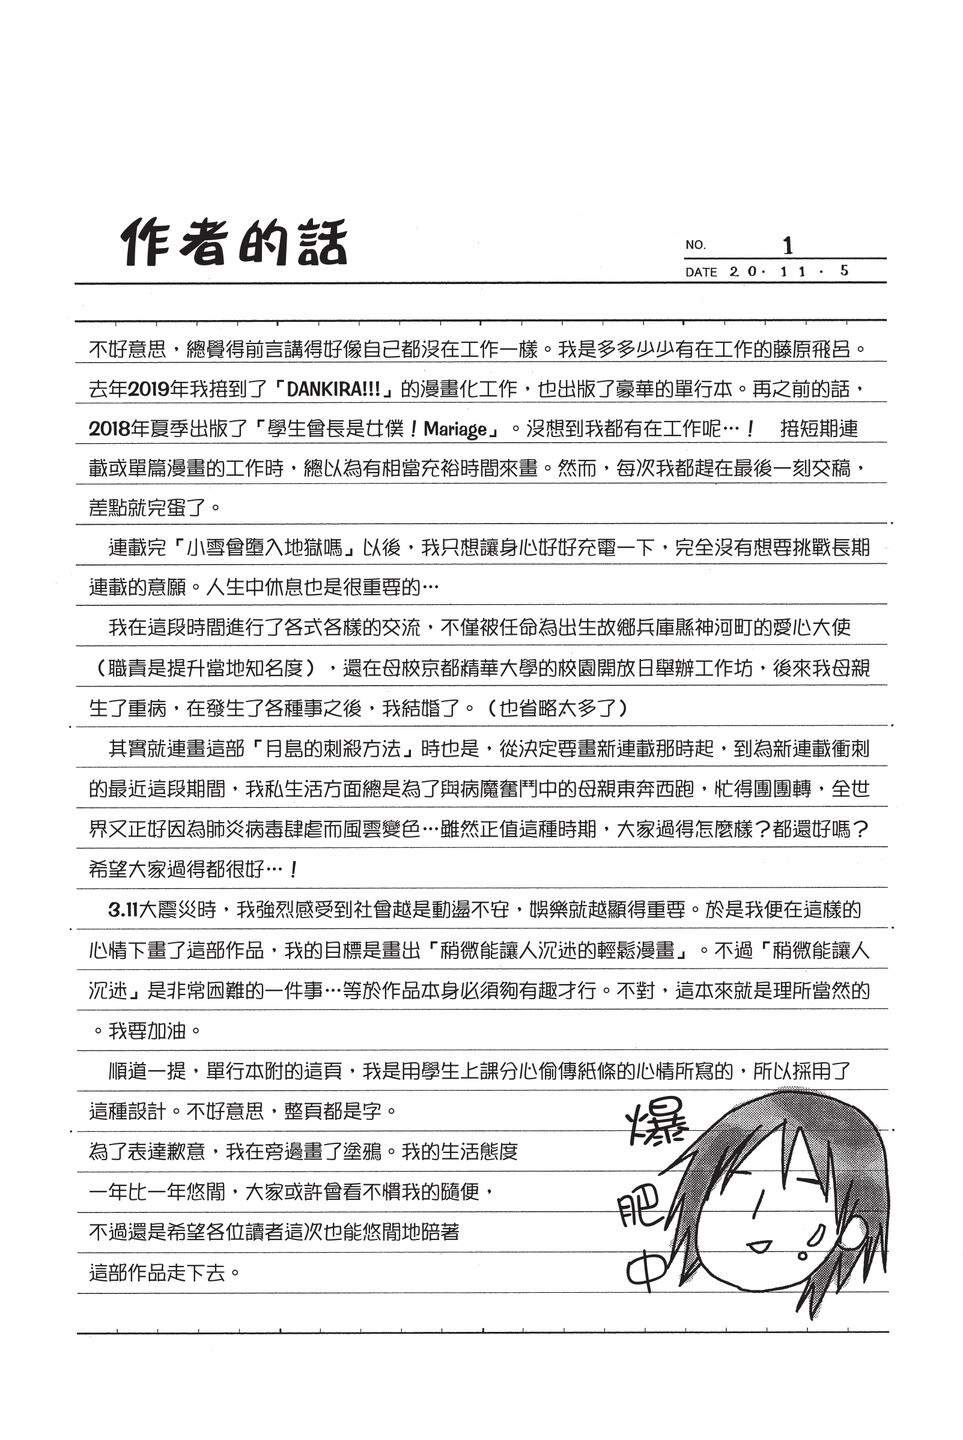 作者的話
NO. 1
DATE 20・11・5
不好意思，總覺得前言講得好像自己都沒在工作一樣。我是多多少少有在工作的藤原飛呂。
去年2019年我接到了「DANKIRA!!!」的漫畫化工作，也出版了豪華的單行本。再之前的話，
2018年夏季出版了「學生會長是女僕！Mariage」。沒想到我都有在工作呢…！　接短期連
載或單篇漫畫的工作時，總以為有相當充裕時間來畫。然而，每次我都趕在最後一刻交稿，
差點就完蛋了。
連載完「小雪會墮入地獄嗎」以後，我只想讓身心好好充電一下，完全沒有想要挑戰長期
連載的意願。人生中休息也是很重要的…
我在這段時間進行了各式各樣的交流，不僅被任命為出生故鄉兵庫縣神河町的愛心大使
（職責是提升當地知名度），還在母校京都精華大學的校園開放日舉辦工作坊，後來我母親
生了重病，在發生了各種事之後，我結婚了。（也省略太多了）
其實就連畫這部「月島的刺殺方法」時也是，從決定要畫新連載那時起，到為新連載衝刺
的最近這段期間，我私生活方面總是為了與病魔奮鬥中的母親東奔西跑，忙得團團轉，全世
界又正好因為肺炎病毒肆虐而風雲變色…雖然正值這種時期，大家過得怎麼樣？都還好嗎？
希望大家過得都很好…！
3.11大震災時，我強烈感受到社會越是動盪不安，娛樂就越顯得重要。於是我便在這樣的
心情下畫了這部作品，我的目標是畫出「稍微能讓人沉迷的輕鬆漫畫」。不過「稍微能讓人
沉迷」是非常困難的一件事…等於作品本身必須夠有趣才行。不對，這本來就是理所當然的
。我要加油。
順道一提，單行本附的這頁，我是用學生上課分心偷傳紙條的心情所寫的，所以採用了
這種設計。不好意思，整頁都是字。
為了表達歉意，我在旁邊畫了塗鴉。我的生活態度
一年比一年悠閒，大家或許會看不慣我的隨便，
不過還是希望各位讀者這次也能悠閒地陪著
這部作品走下去。
爆
肥
中